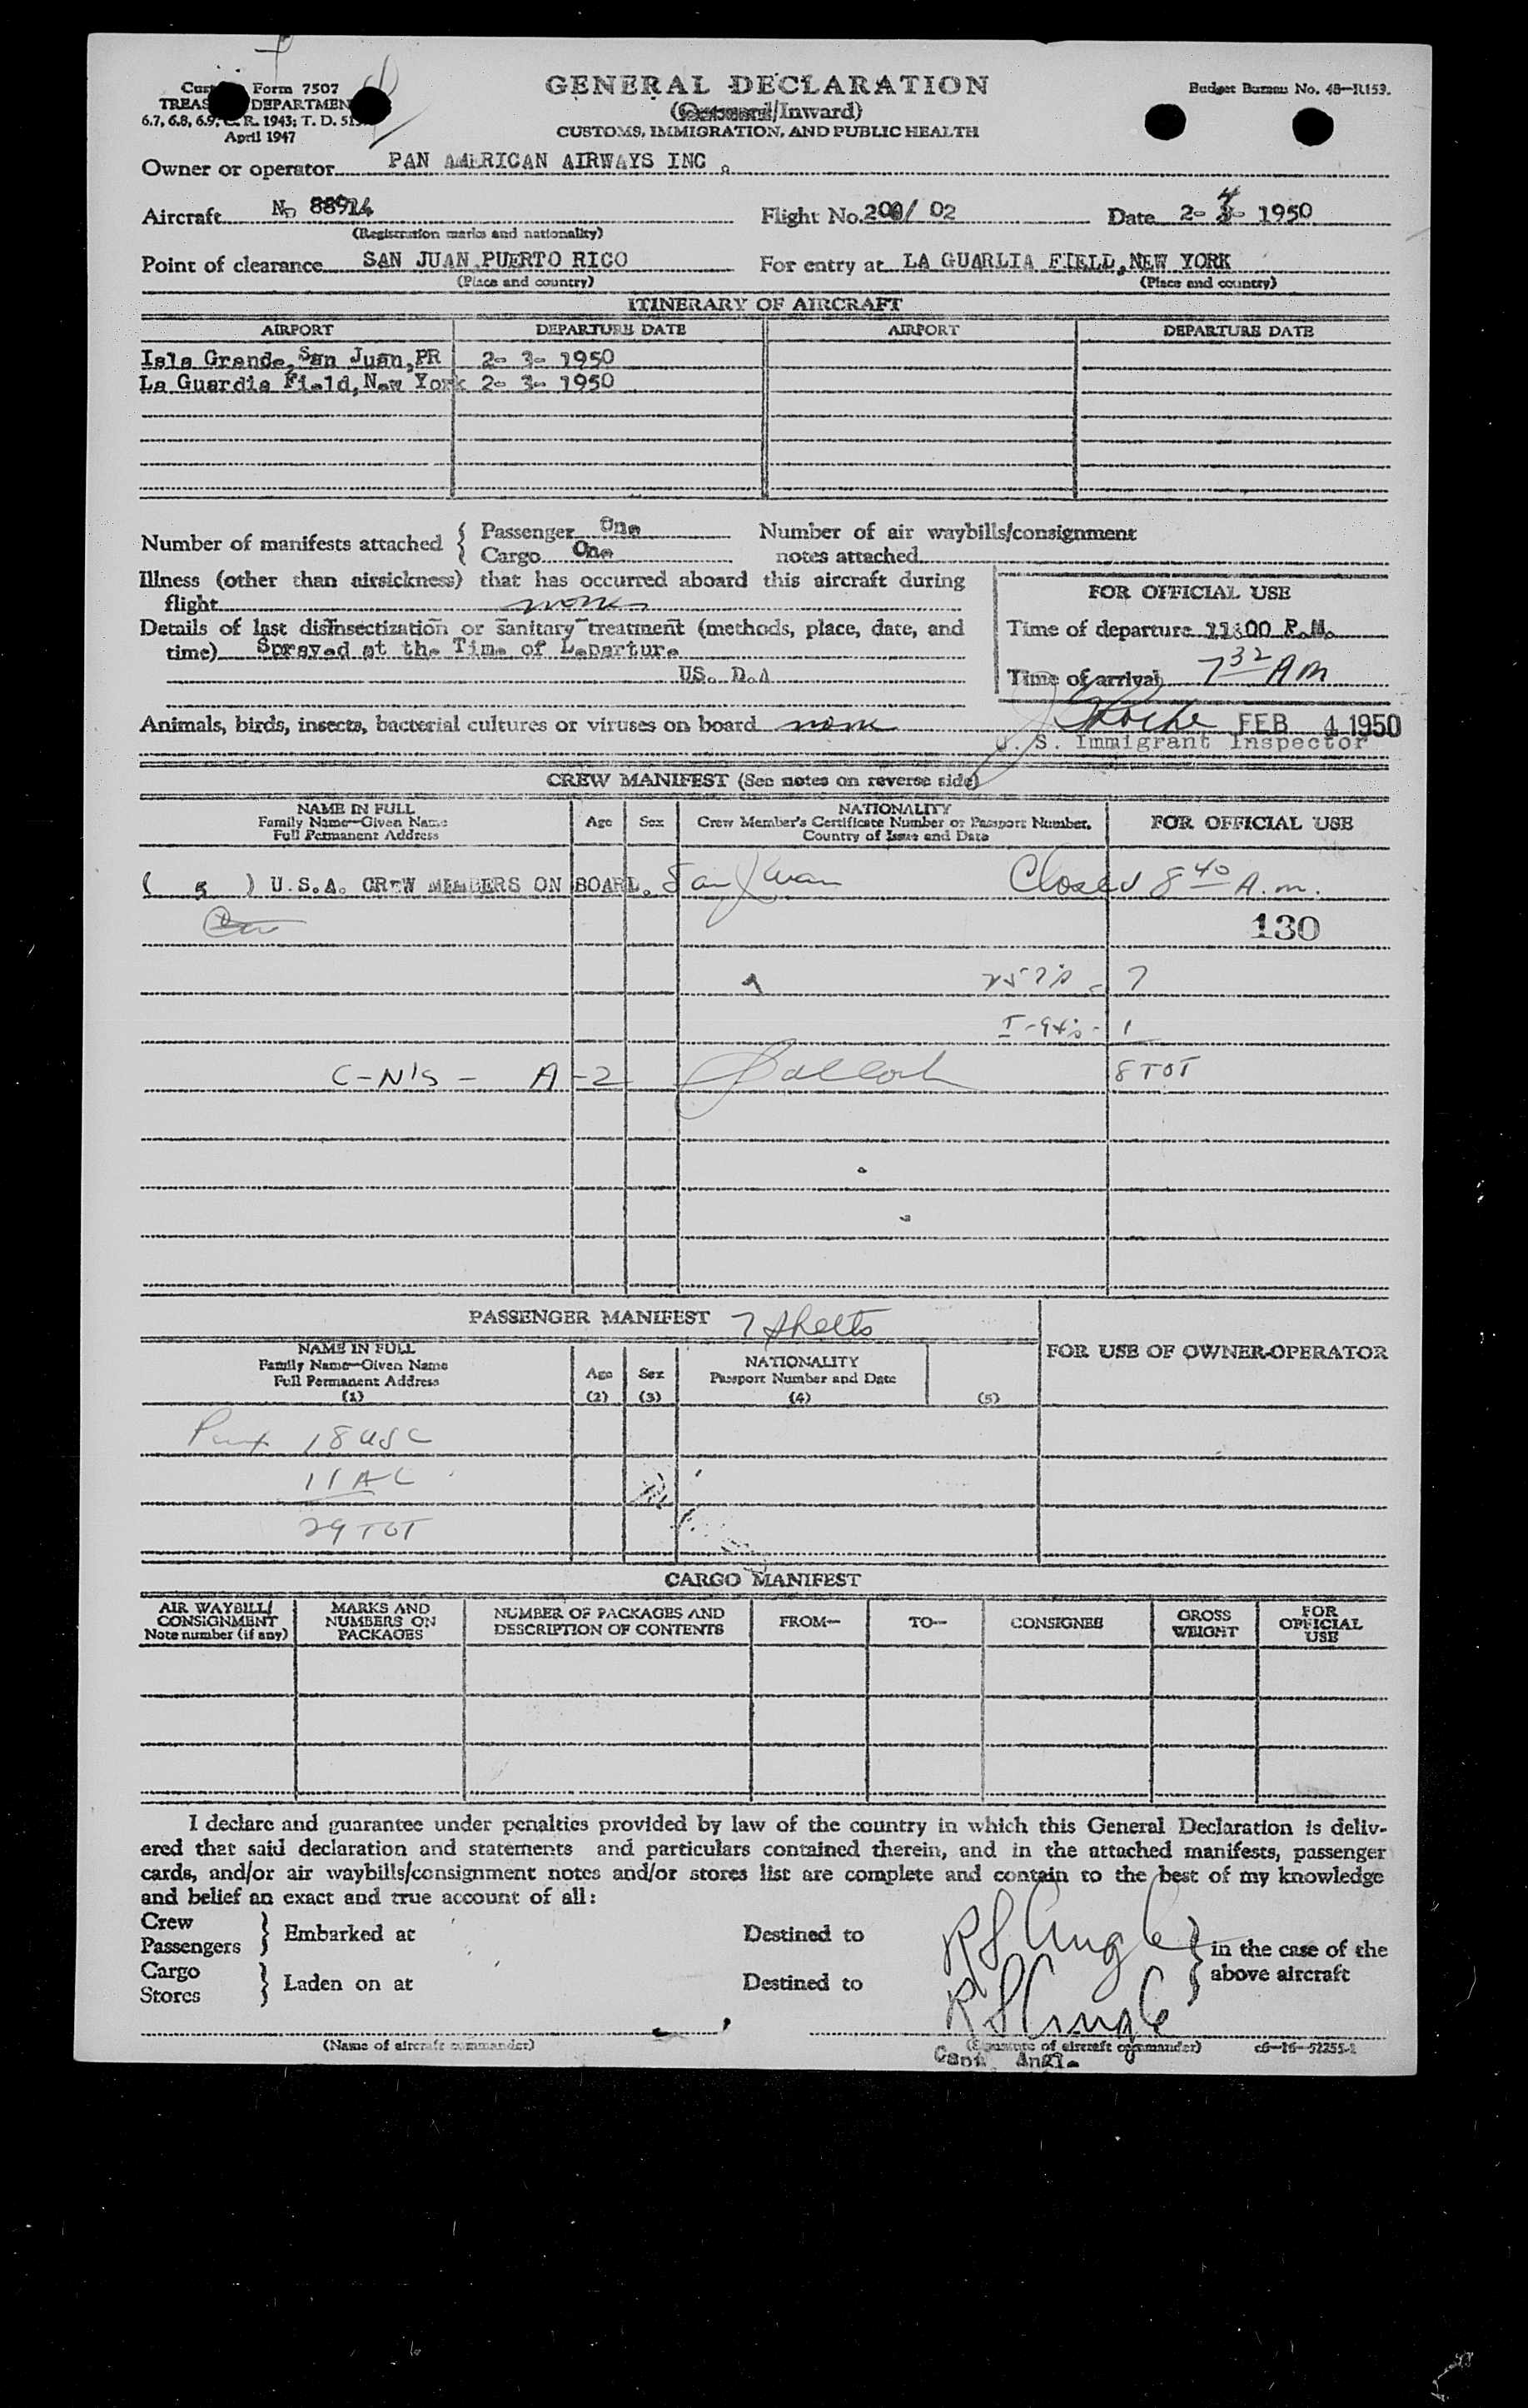 GENERAL DECLARATION
(Outward/Inward)
CUSTOMS, IMMIGRATION, AND PUBLIC HEALTH
Form 7507
DEPARTMEN
6.7, 6.8, 6.9, C. R. 1943; T. D.
April 1947
Budget Bureau No. 48—R153.
Owner or operator PAN AMERICAN AIRWAYS INC.
Aircraft 88914 Flight No. 200/ 02 Date 2- 4- 1950
(Registration marks and nationality)
Point of clearance SAN JUAN, PUERTO RICO For entry at LA GUARLIA FIELD, NEW YORK
(Place and country) (Place and country)
ITINERARY OF AIRCRAFT
AIRPORT DEPARTURE DATE AIRPORT DEPARTURE DATE
Isla Grande, San Juan, PR 2- 3- 1950
La Guardia Field, New York 2- 3- 1950
Number of manifests attached { Passenger One
Cargo One
Number of air waybills/consignment
notes attached
Illness (other than airsickness) that has occurred aboard this aircraft during
flight none
Details of last disinsectization or sanitary treatment (methods, place, date, and
time) Sprayed at the Time of Departure
US. D.A
FOR OFFICIAL USE
Time of departure 11:00 P.M.
Time of arrival 7 32 AM
Animals, birds, insects, bacterial cultures or viruses on board none
FEB 4 1950
U. S. Immigrant Inspector
CREW MANIFEST (See notes on reverse side)
NAME IN FULL
Family Name—Given Name
Full Permanent Address
Age Sex
NATIONALITY
Crew Member's Certificate Number or Passport Number,
Country of Issue and Date
FOR OFFICIAL USE
( 5 ) U.S.A. CREW MEMBERS ON BOARD. San Juan Closed 8 40 A.m.
130
257's - 7
I-94's - 1
C-N's - A-2 8 TOT
PASSENGER MANIFEST 7 sheets
NAME IN FULL
Family Name—Given Name
Full Permanent Address
(1)
Age
(2)
Sex
(3)
NATIONALITY
Passport Number and Date
(4)
(5)
FOR USE OF OWNER-OPERATOR
18 USC
11 AC
29 TOT
CARGO MANIFEST
AIR WAYBILL/
CONSIGNMENT
Note number (if any)
MARKS AND
NUMBERS ON
PACKAGES
NUMBER OF PACKAGES AND
DESCRIPTION OF CONTENTS
FROM—
TO—
CONSIGNEE
GROSS
WEIGHT
FOR
OFFICIAL
USE
I declare and guarantee under penalties provided by law of the country in which this General Declaration is deliv-
ered that said declaration and statements and particulars contained therein, and in the attached manifests, passenger
cards, and/or air waybills/consignment notes and/or stores list are complete and contain to the best of my knowledge
and belief an exact and true account of all:
Crew
Passengers } Embarked at Destined to
Cargo
Stores } Laden on at Destined to
} in the case of the
above aircraft
R S Angle
R S Angle
(Name of aircraft commander) (Signature of aircraft commander) c6—16—52255-1
Capt. Angle